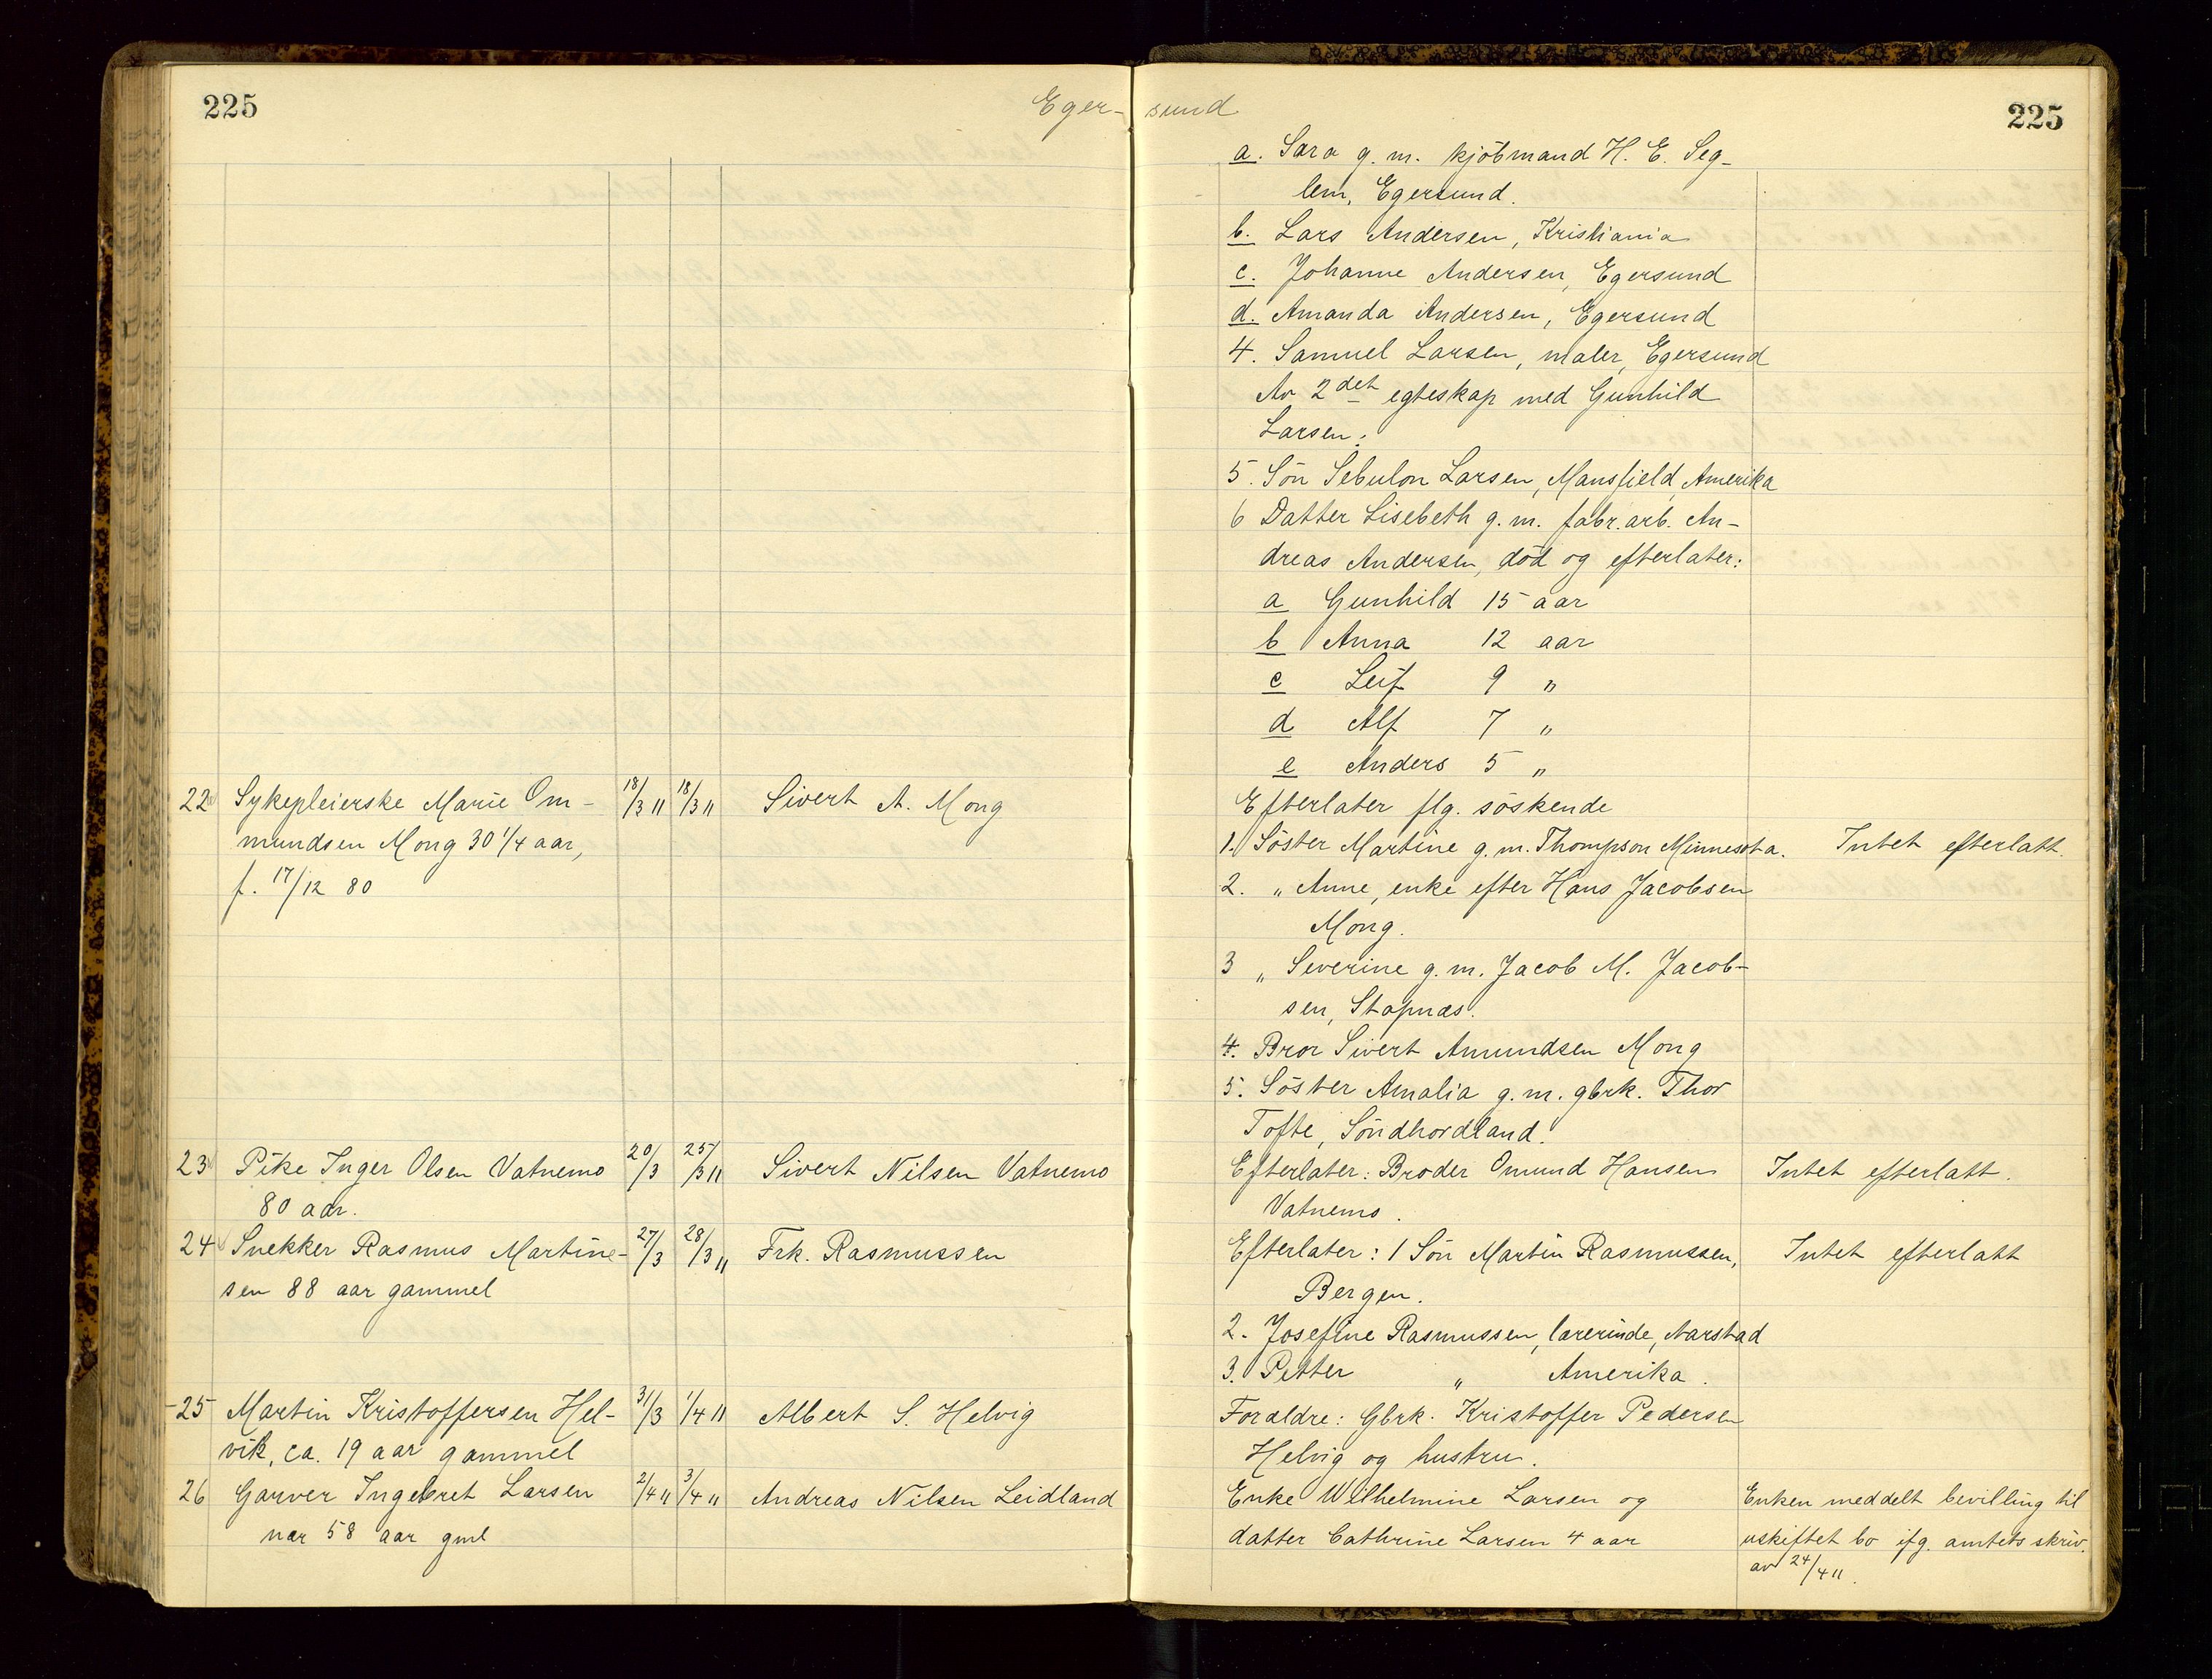 225
Eger-
sund
225
a. Sara g. m. kjöbmand H. E. Seg-
lem, Egersund.
b. Lars Andersen, Kristiania
c. Johanne Andersen, Egersund
d. Amanda Andersen, Egersund
4. Samuel Larsen, maler, Egersund
Av 2det egteskap med Gunhild
Larsen:
5. Sön Sebulon Larsen, Mansfield, Amerika
6 Datter Lisebeth g. m. fabr. arb. An-
dreas Andersen, död og efterlater:
a Gunhild 15 aar
b Anna 12 aar
c Leif 9 "
d Alf 7 "
e Anders 5 "
22 Sykepleierske Marie Om- 18/3 11 18/3 11 Sivert A. Mong Efterlater flg. söskende
mundsen Mong 30 1/4 aar, 1. Söster Martine g. m. Thompson Minnesota. Intet efterlatt.
f. 17/12 80 2. " Anne, enke efter Hans Jacobsen
Mong.
3 " Severine g. m. Jacob M. Jacob-
sen, Stapnæs.
4. Bror Sivert Amundsen Mong
5. Söster Amalia g. m. gbrk. Thor
Tofte, Söndhordland.
23 Pike Inger Olsen Vatnemo 20/3 25/3 11 Sivert Nilsen Vatnemo Efterlater: Broder Omund Hansen Intet efterlatt.
80 aar. Vatnemo.
24 Snekker Rasmus Martine- 27/3 28/3 11 Frk. Rasmussen Efterlater: 1 Sön Martin Rasmussen, Intet efterlatt
sen 88 aar gammel Bergen.
2. Josefine Rasmussen, lærerinde, Aarstad
3. Petter " Amerika.
25 Martin Kristoffersen Hel- 31/3 1/4 11 Albert S. Helvig Forældre: Gbrk. Kristoffer Pedersen
vik, ca. 19 aar gammel Helvig og hustru.
26 Garver Ingebret Larsen 2/4 11 3/4 11 Andreas Nilsen Leidland Enke Wilhelmine Larsen og Enken meddelt bevilling til
nær 58 aar gml datter Cathrine Larsen 4 aar uskiftet bo ifg. amtets skriv.
av 24/4 11.